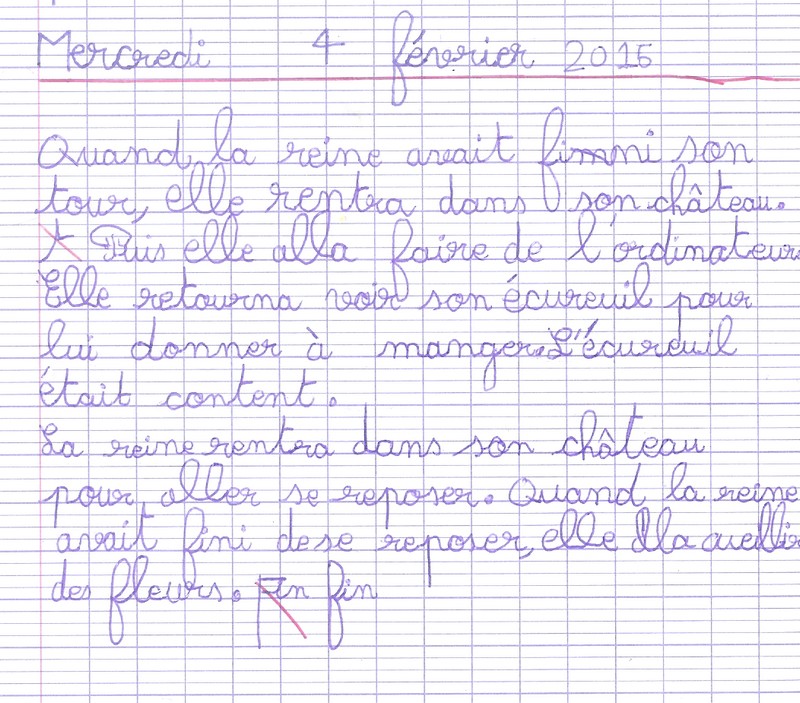 Mercredi 4 février 2015
Quand la reine avait fimmni son
tour, elle rentra dans son château.
Puis elle alla faire de l'ordinateur
Elle retourna voir son écureuil pour
lui donner à manger. L'écureuil
était content.
La reine rentra dans son château
pour aller se reposer. Quand la reine
avait fini de se reposer, elle alla cueillir
des fleurs. Fin fin